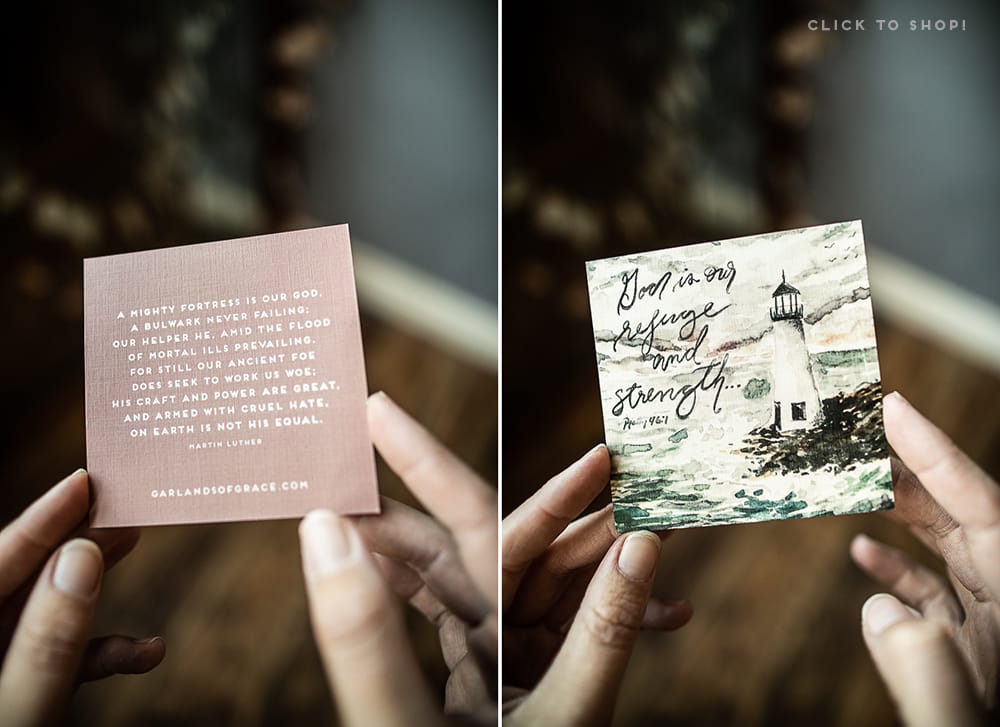 A MIGHTY FORTRESS IS OUR GOD,
A BULWARK NEVER FAILING;
OUR HELPER HE, AMID THE FLOOD
OF MORTAL ILLS PREVAILING.
FOR STILL OUR ANCIENT FOE
DOES SEEK TO WORK US WOE;
HIS CRAFT AND POWER ARE GREAT,
AND ARMED WITH CRUEL HATE,
ON EARTH IS NOT HIS EQUAL.
MARTIN LUTHER
GARLANDSOFGRACE.COM
CLICK TO SHOP!
God is our
refuge
and
strength...
46:1